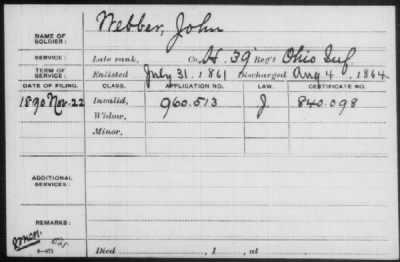 Webber, John
NAME OF
SOLDIER:
SERVICE: Late rank, Co. H. 39 Reg't Ohio Inf.
TERM OF
SERVICE: Enlisted July 31, 1861 Discharged Aug 4, 1864
DATE OF FILING. CLASS. APPLICATION NO. LAW. CERTIFICATE NO.
1890 Nov. 22 Invalid, 960.513 J. 840.098
Widow,
Minor,
ADDITIONAL
SERVICES:
REMARKS:
6-471 Died , 1 , at